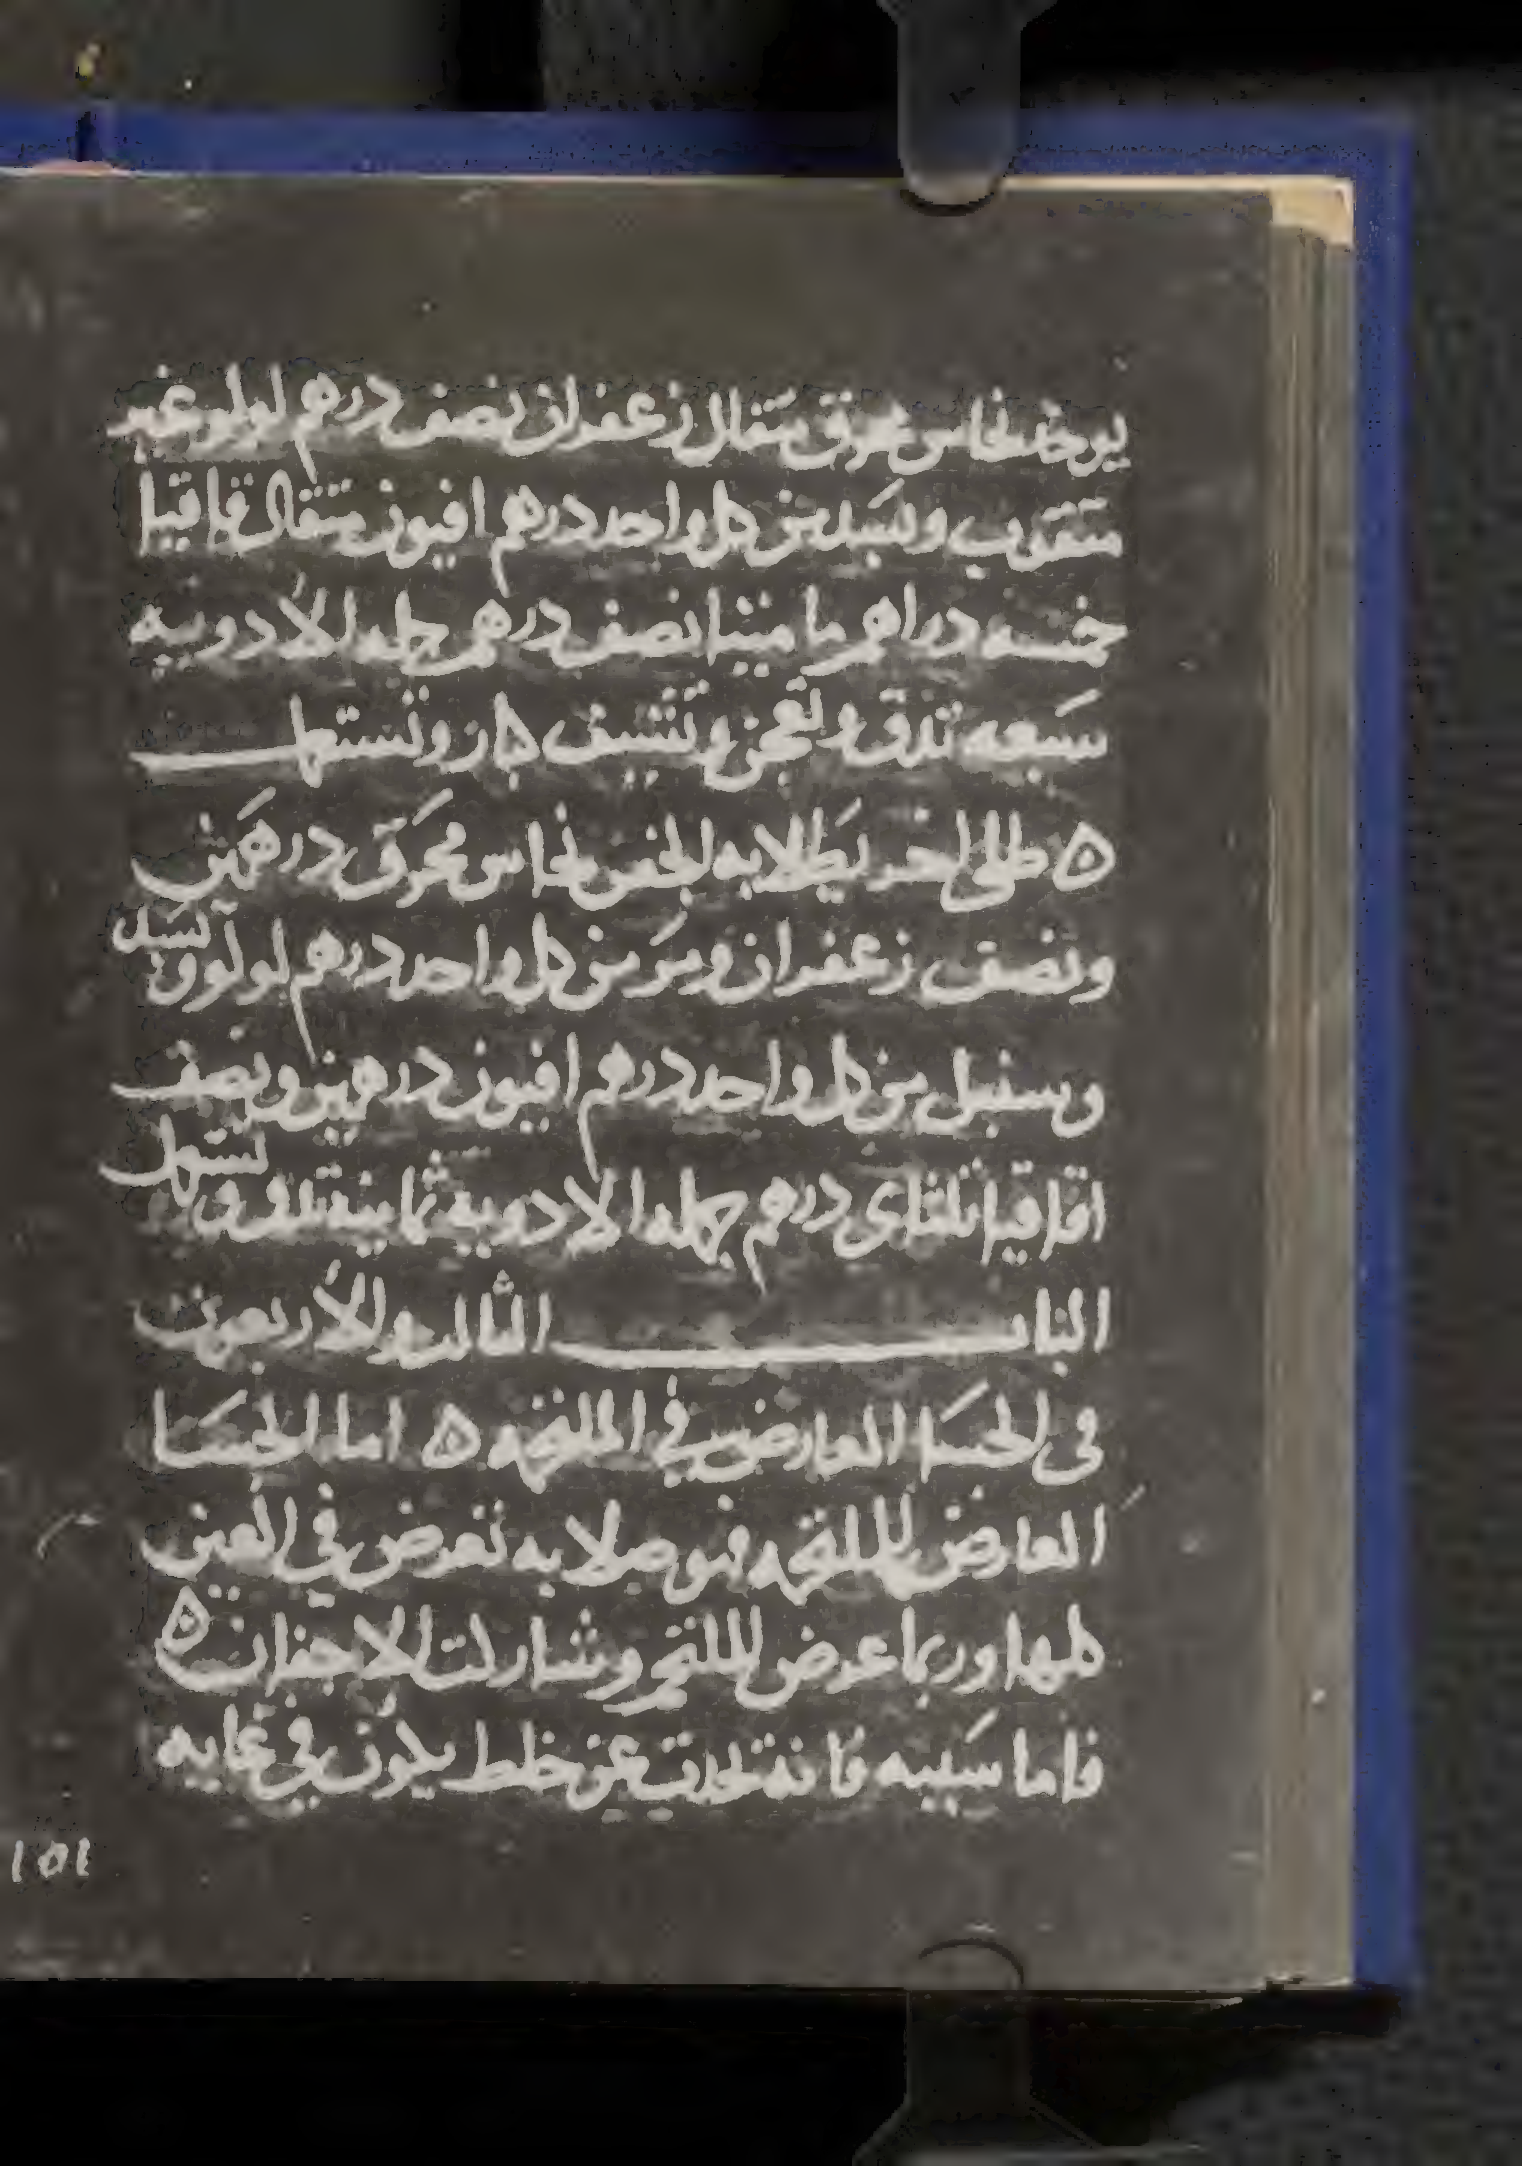 يوخذ نحاس محرق مثقال زعفران نصف درهم لولو غير
مثقوب وبسد من كل واحد درهم افيون مثقال قاقيا
خمسه دراهم ماميثا نصف درهم جمله الأدويه
سبعه تدق وتعجن وتشيف كبار وتستعمل
ه طلى اخر يطلا به الجفن نحاس محرق درهمين
ونصف زعفران ومر من كل واحد درهم لولو وبسد
وسنبل من كل واحد درهم افيون درهمين ونصف
اقاقيا ثلثاى درهم جمله الادويه ثمانيه تدق وتستعمل
الباب الثالث والأربعون
فى الجسا العارض في الملتحمه ه اما الجسا
العارض للملتحمه فهو صلابه تعرض في العين
كلها وربما عرض للملتحم وشاركت الاجفان ه
فاما سببه فانه تحدث عن خلط يكون في غايه
١٥١